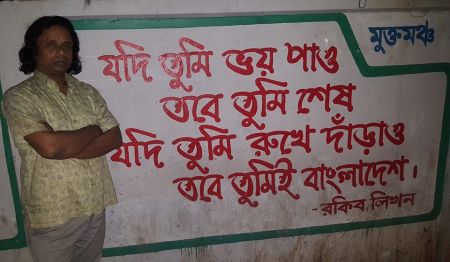 মুক্তমঞ্চ
যদি তুমি ভয় পাও
তবে তুমি শেষ
যদি তুমি রুখে দাঁড়াও
তবে তুমিই বাংলাদেশ।
-রকিব লিখন